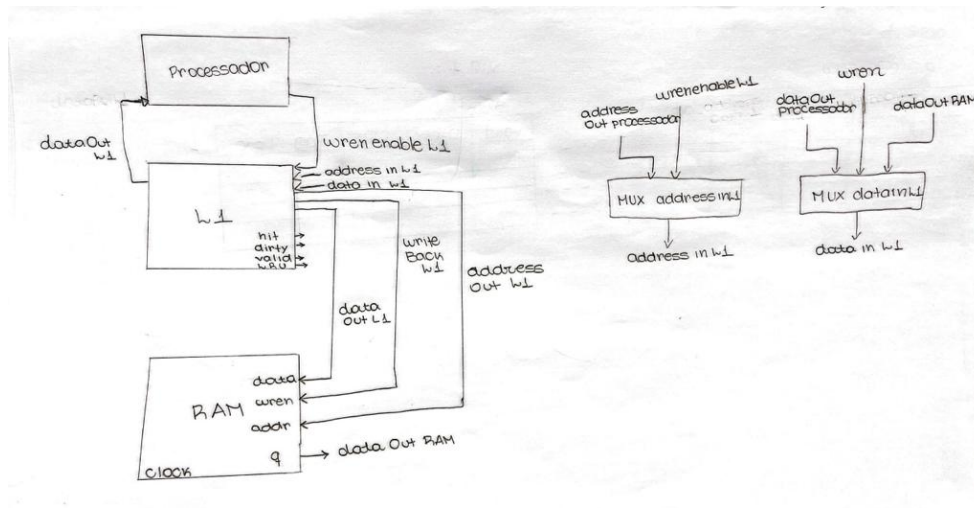 Processador
data Out
L1
wren enable L1
address in L1
data in L1
L1
hit
dirty
valid
LRU
write
Back
L1
address
Out L1
data
Out L1
data
RAM
wren
addr
q
data Out RAM
Clock
address
Out processador
wren enable L1
MUX address in L1
address in L1
wren
data Out
processador
data Out RAM
MUX data in L1
data in L1